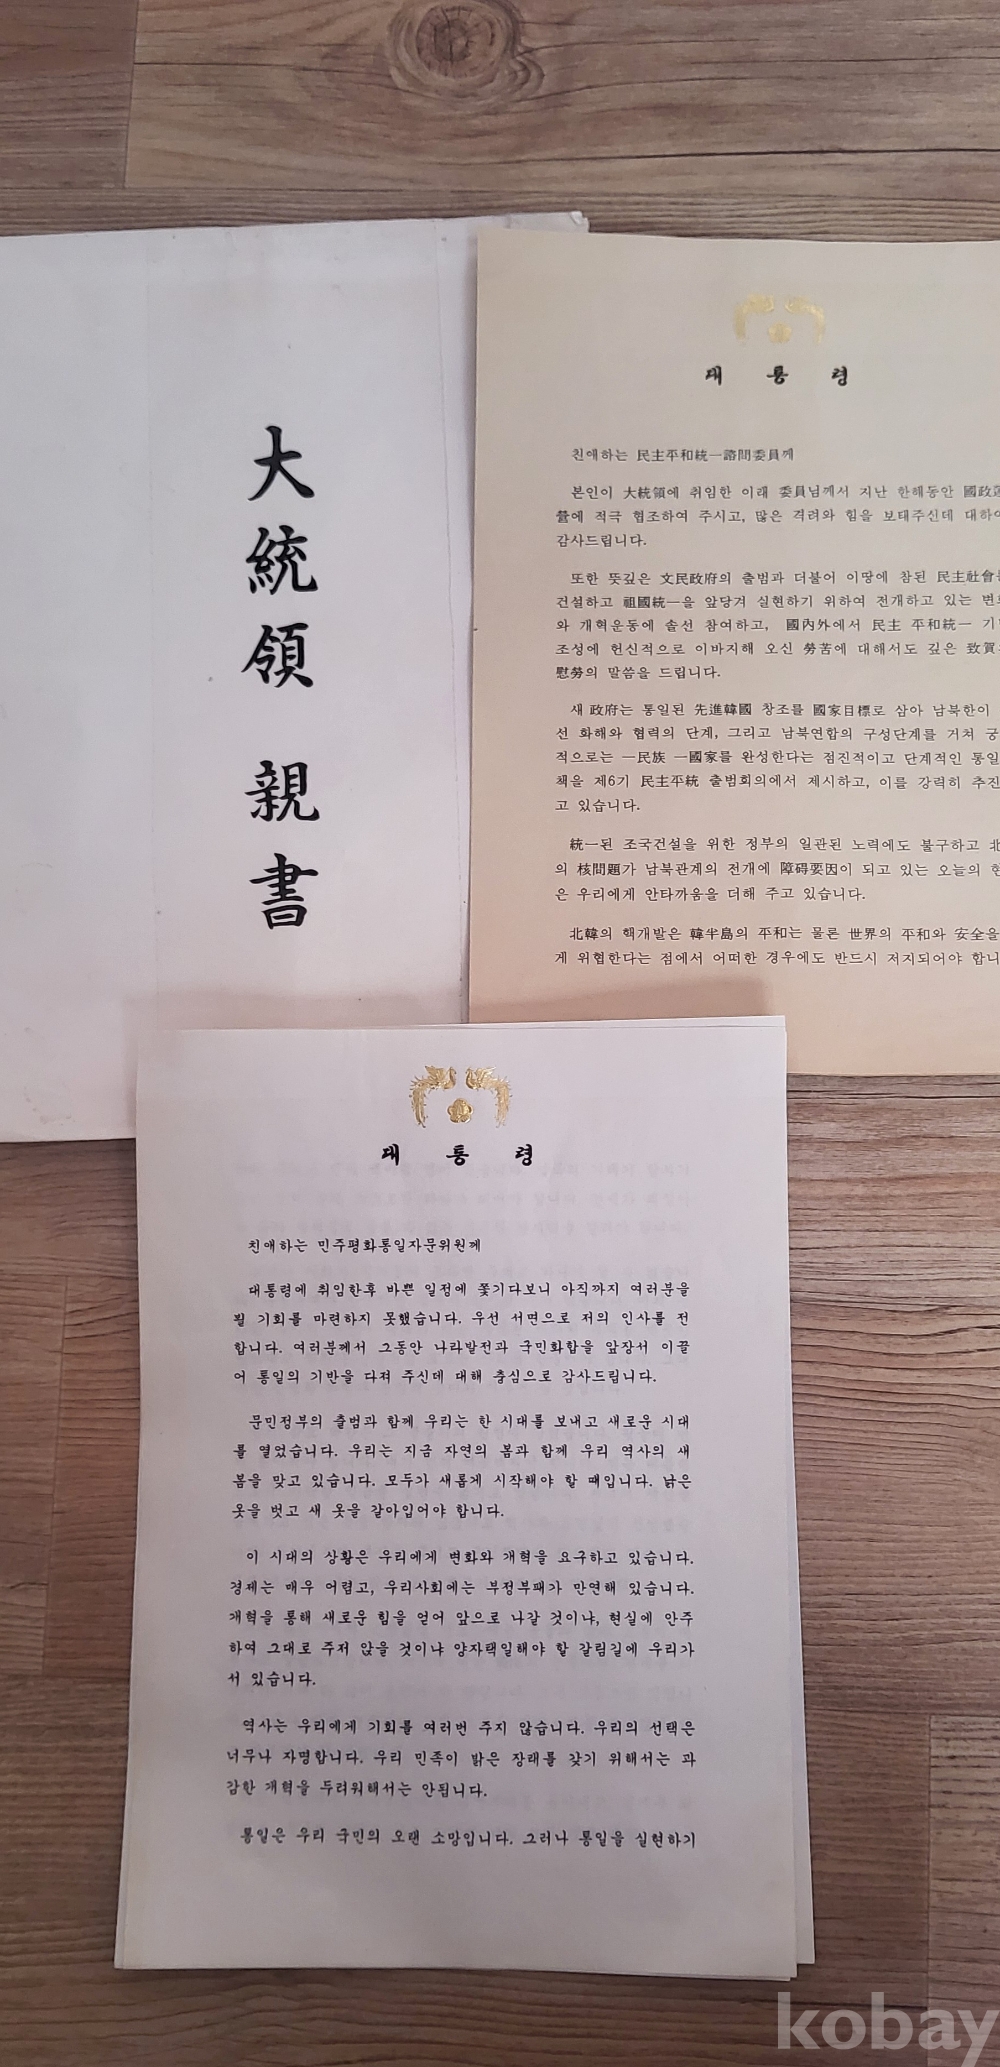 大統領 親書
대 통 령
친애하는 民主平和統一諮問委員께
본인이 大統領에 취임한 이래 委員님께서 지난 한해동안 國政運
營에 적극 협조하여 주시고, 많은 격려와 힘을 보태주신데 대하여
감사드립니다.
또한 뜻깊은 文民政府의 출범과 더불어 이땅에 참된 民主社會를
건설하고 祖國統一을 앞당겨 실현하기 위하여 전개하고 있는 변화
와 개혁운동에 솔선 참여하고, 國內外에서 民主 平和統一 기반
조성에 헌신적으로 이바지해 오신 勞苦에 대해서도 깊은 致賀와
慰勞의 말씀을 드립니다.
새 政府는 통일된 先進韓國 창조를 國家目標로 삼아 남북한이
선 화해와 협력의 단계, 그리고 남북연합의 구성단계를 거쳐 궁
적으로는 一民族 一國家를 완성한다는 점진적이고 단계적인 통일
책을 제6기 民主平統 출범회의에서 제시하고, 이를 강력히 추진
고 있습니다.
統一된 조국건설을 위한 정부의 일관된 노력에도 불구하고 北
의 核問題가 남북관계의 전개에 障碍要因이 되고 있는 오늘의 현
은 우리에게 안타까움을 더해 주고 있습니다.
北韓의 핵개발은 韓半島의 平和는 물론 世界의 平和와 安全을
게 위협한다는 점에서 어떠한 경우에도 반드시 저지되어야 합니
대 통 령
친애하는 민주평화통일자문위원께
대통령에 취임한후 바쁜 일정에 쫓기다보니 아직까지 여러분을
뵐 기회를 마련하지 못했습니다. 우선 서면으로 저의 인사를 전
합니다. 여러분께서 그동안 나라발전과 국민화합을 앞장서 이끌
어 통일의 기반을 다져 주신데 대해 충심으로 감사드립니다.
문민정부의 출범과 함께 우리는 한 시대를 보내고 새로운 시대
를 열었습니다. 우리는 지금 자연의 봄과 함께 우리 역사의 새
봄을 맞고 있습니다. 모두가 새롭게 시작해야 할 때입니다. 낡은
옷을 벗고 새 옷을 갈아입어야 합니다.
이 시대의 상황은 우리에게 변화와 개혁을 요구하고 있습니다.
경제는 매우 어렵고, 우리사회에는 부정부패가 만연해 있습니다.
개혁을 통해 새로운 힘을 얻어 앞으로 나갈 것이냐, 현실에 안주
하여 그대로 주저 앉을 것이냐 양자택일해야 할 갈림길에 우리가
서 있습니다.
역사는 우리에게 기회를 여러번 주지 않습니다. 우리의 선택은
너무나 자명합니다. 우리 민족이 밝은 장래를 갖기 위해서는 과
감한 개혁을 두려워해서는 안됩니다.
통일은 우리 국민의 오랜 소망입니다. 그러나 통일을 실현하기
kobay